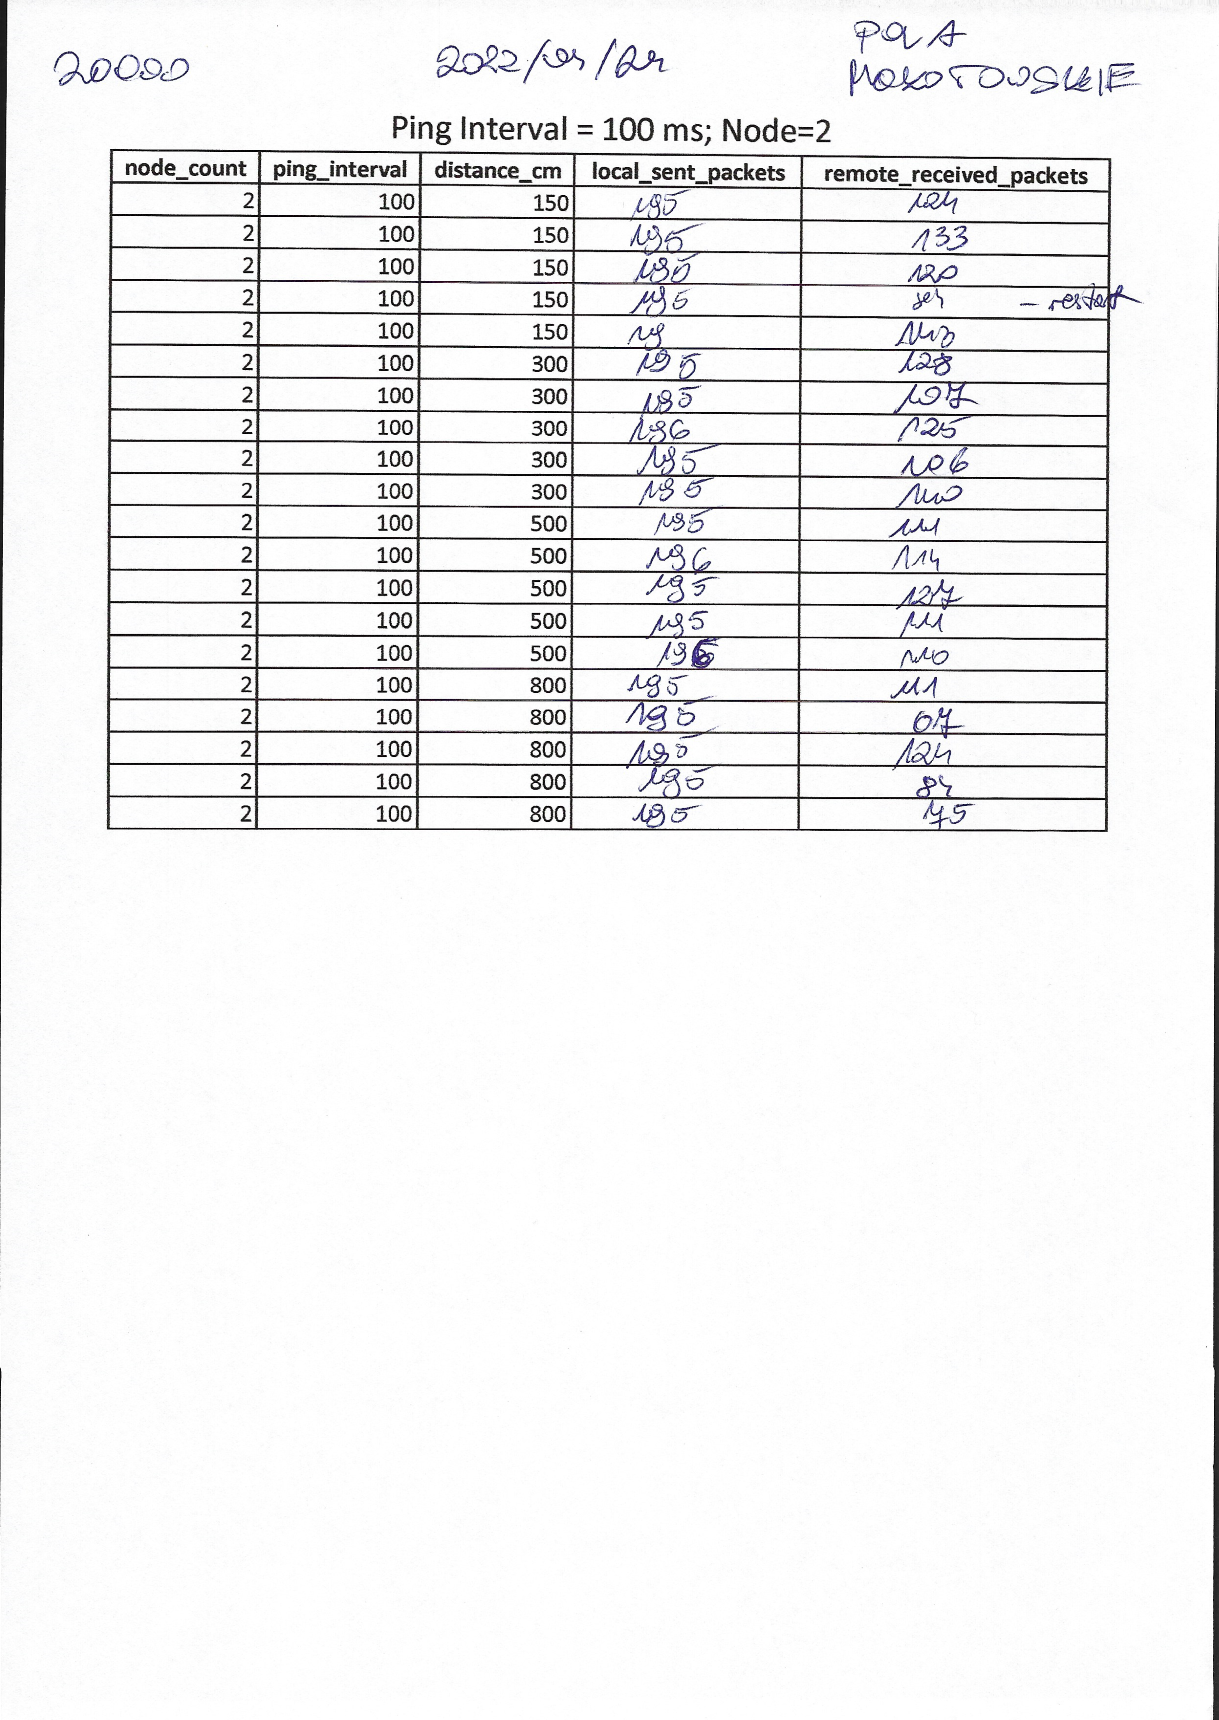 20000 2022/04/24 POLA
MOKOTOWSKIE
Ping Interval = 100 ms; Node=2
node_count ping_interval distance_cm local_sent_packets remote_received_packets
2 100 150 195 124
2 100 150 195 133
2 100 150 195 120
2 100 150 195 - restart
2 100 150 19
2 100 300 195 128
2 100 300 195 107
2 100 300 196 125
2 100 300 195 106
2 100 300 195 110
2 100 500 195 111
2 100 500 196 114
2 100 500 195 127
2 100 500 195 111
2 100 500 196 110
2 100 800 195 111
2 100 800 195 67
2 100 800 195 124
2 100 800 195 84
2 100 800 195 75